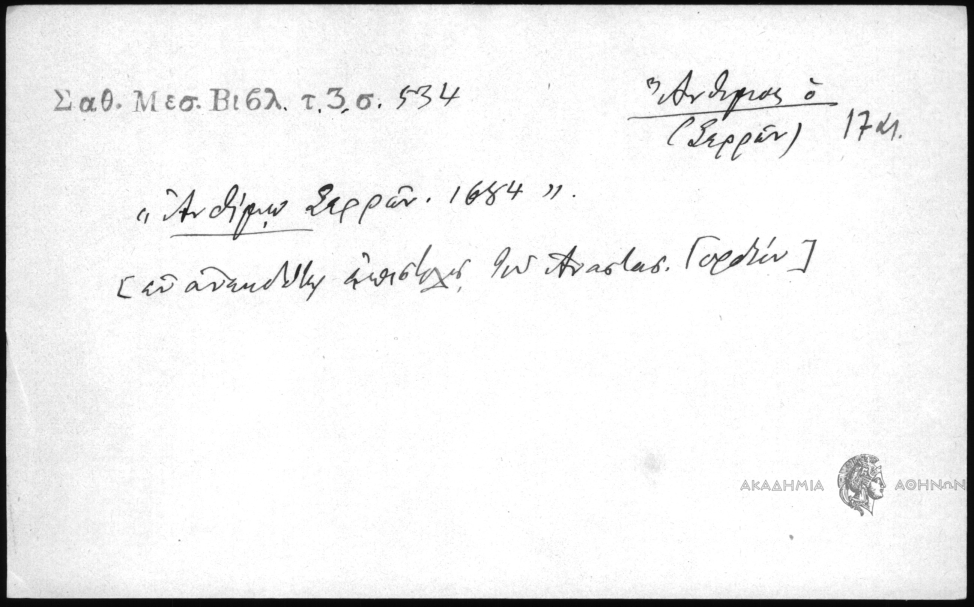 Σαθ. Μεσ. Βιβλ. τ. 3, σ. 534
Ἄνθιμος ὁ
(Σερρῶν) 17 αι.
"Ἀνθίμῳ Σερρῶν. 1684".
[ἐν ἀνεκδότῳ ἐπιστολῇ τοῦ Ἀναστασ. Γορδίου]
ΑΚΑΔΗΜΙΑ ΑΘΗΝΩΝ